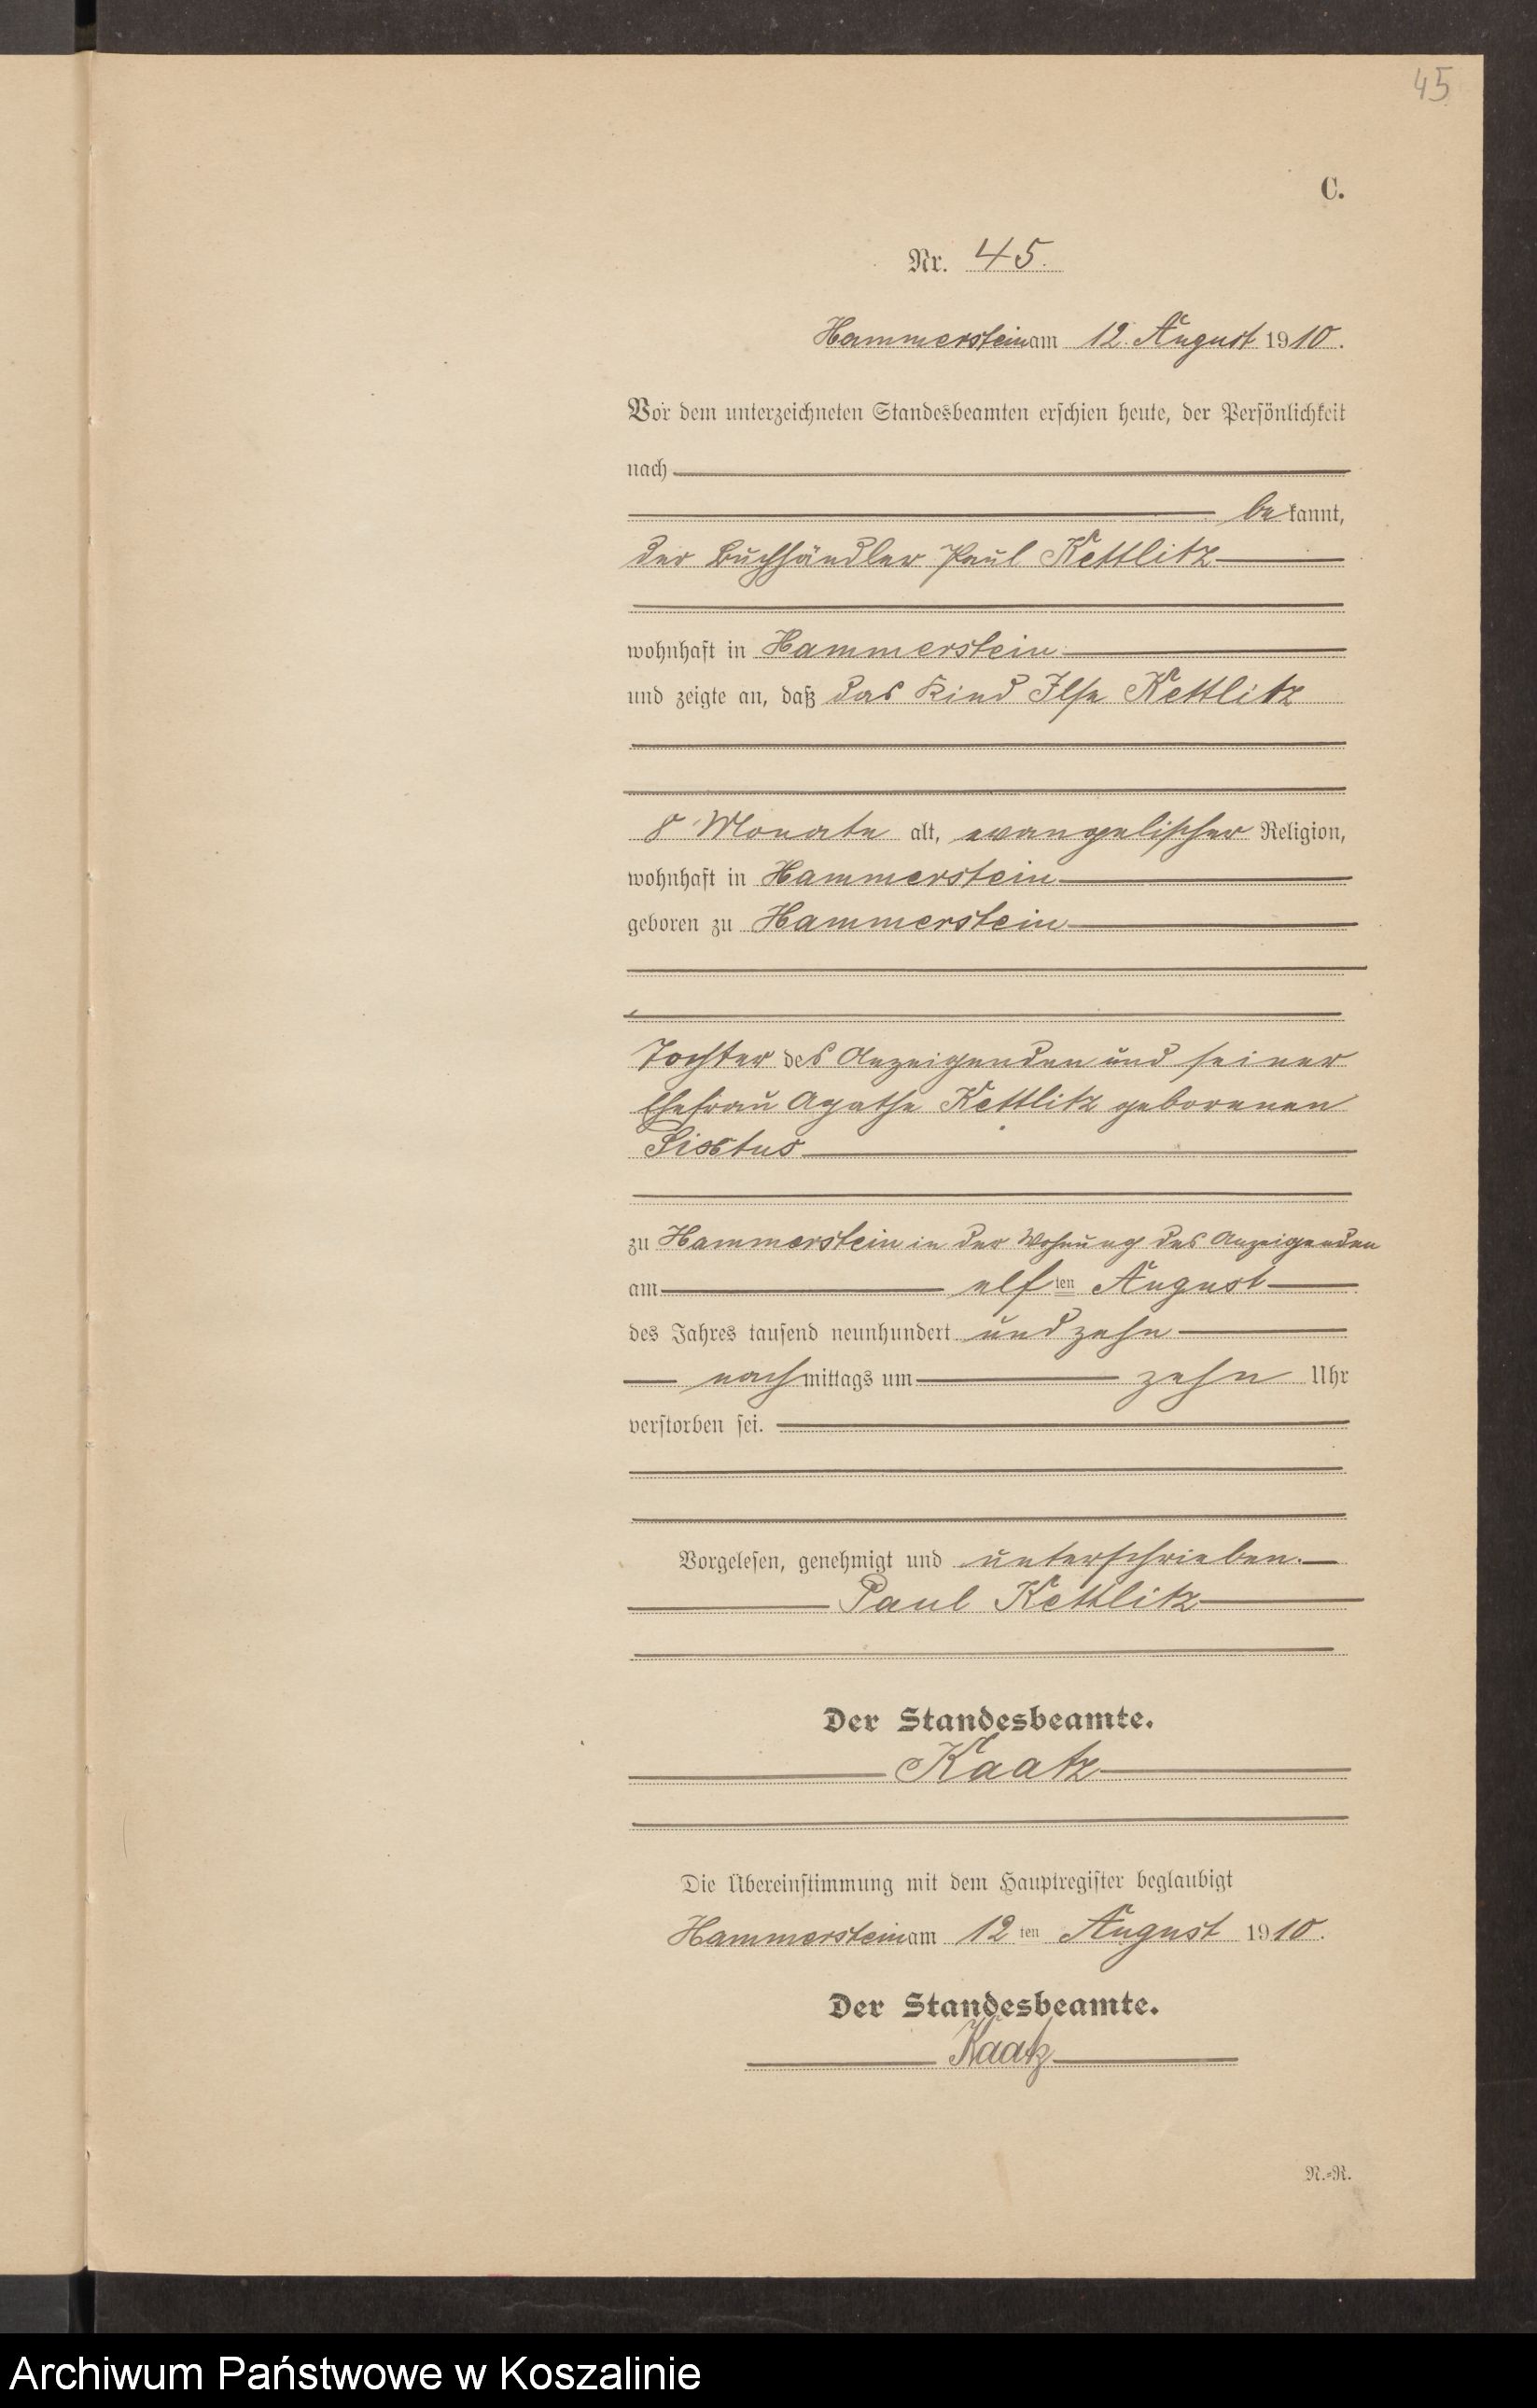 45
C.
Nr. 45.
Hammerstein am 12. August 1910.
Vor dem unterzeichneten Standesbeamten erschien heute, der Persönlichkeit
nach
be kannt,
der Buchhändler Paul Kettlitz
wohnhaft in Hammerstein
und zeigte an, daß das Kind Ilse Kettlitz
8 Monate alt, evangelischer Religion,
wohnhaft in Hammerstein
geboren zu Hammerstein
Tochter des Anzeigenden und seiner
Ehefrau Agathe Kettlitz geborenen
zu Hammerstein in der Wohnung des Anzeigenden
am elften August
des Jahres tausend neunhundert und zehn
nachmittags um zehn Uhr
verstorben sei.
Vorgelesen, genehmigt und unterschrieben.
Paul Kettlitz
Der Standesbeamte.
Kaatz
Die Übereinstimmung mit dem Hauptregister beglaubigt
Hammerstein am 12ten August 1910.
Der Standesbeamte.
Kaatz
N.=R.
Archiwum Państwowe w Koszalinie